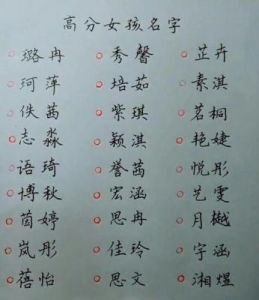 高分女孩名字
璐冉 秀馨 芷卉
珂萍 培茹 素淇
佚茜 紫琪 茗桐
志淼 颖淇 艳婕
语琦 誉茜 悦彤
博秋 宏涵 艺雯
茵婷 思冉 月樾
岚彤 佳玲 宇涵
蓓怡 思文 湘煜